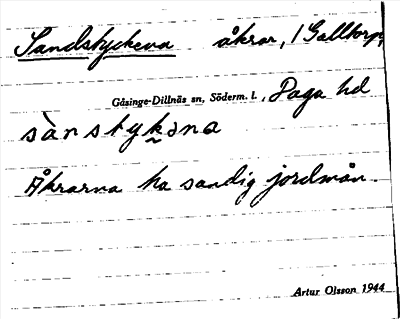 Sandstyckena åkrar, / Galltorp,
Gåsinge-Dillnäs sn, Söderm. l., Daga hd
sànstyk̬əna
Åkrarna ha sandig jordmån.
Artur Olsson 1944